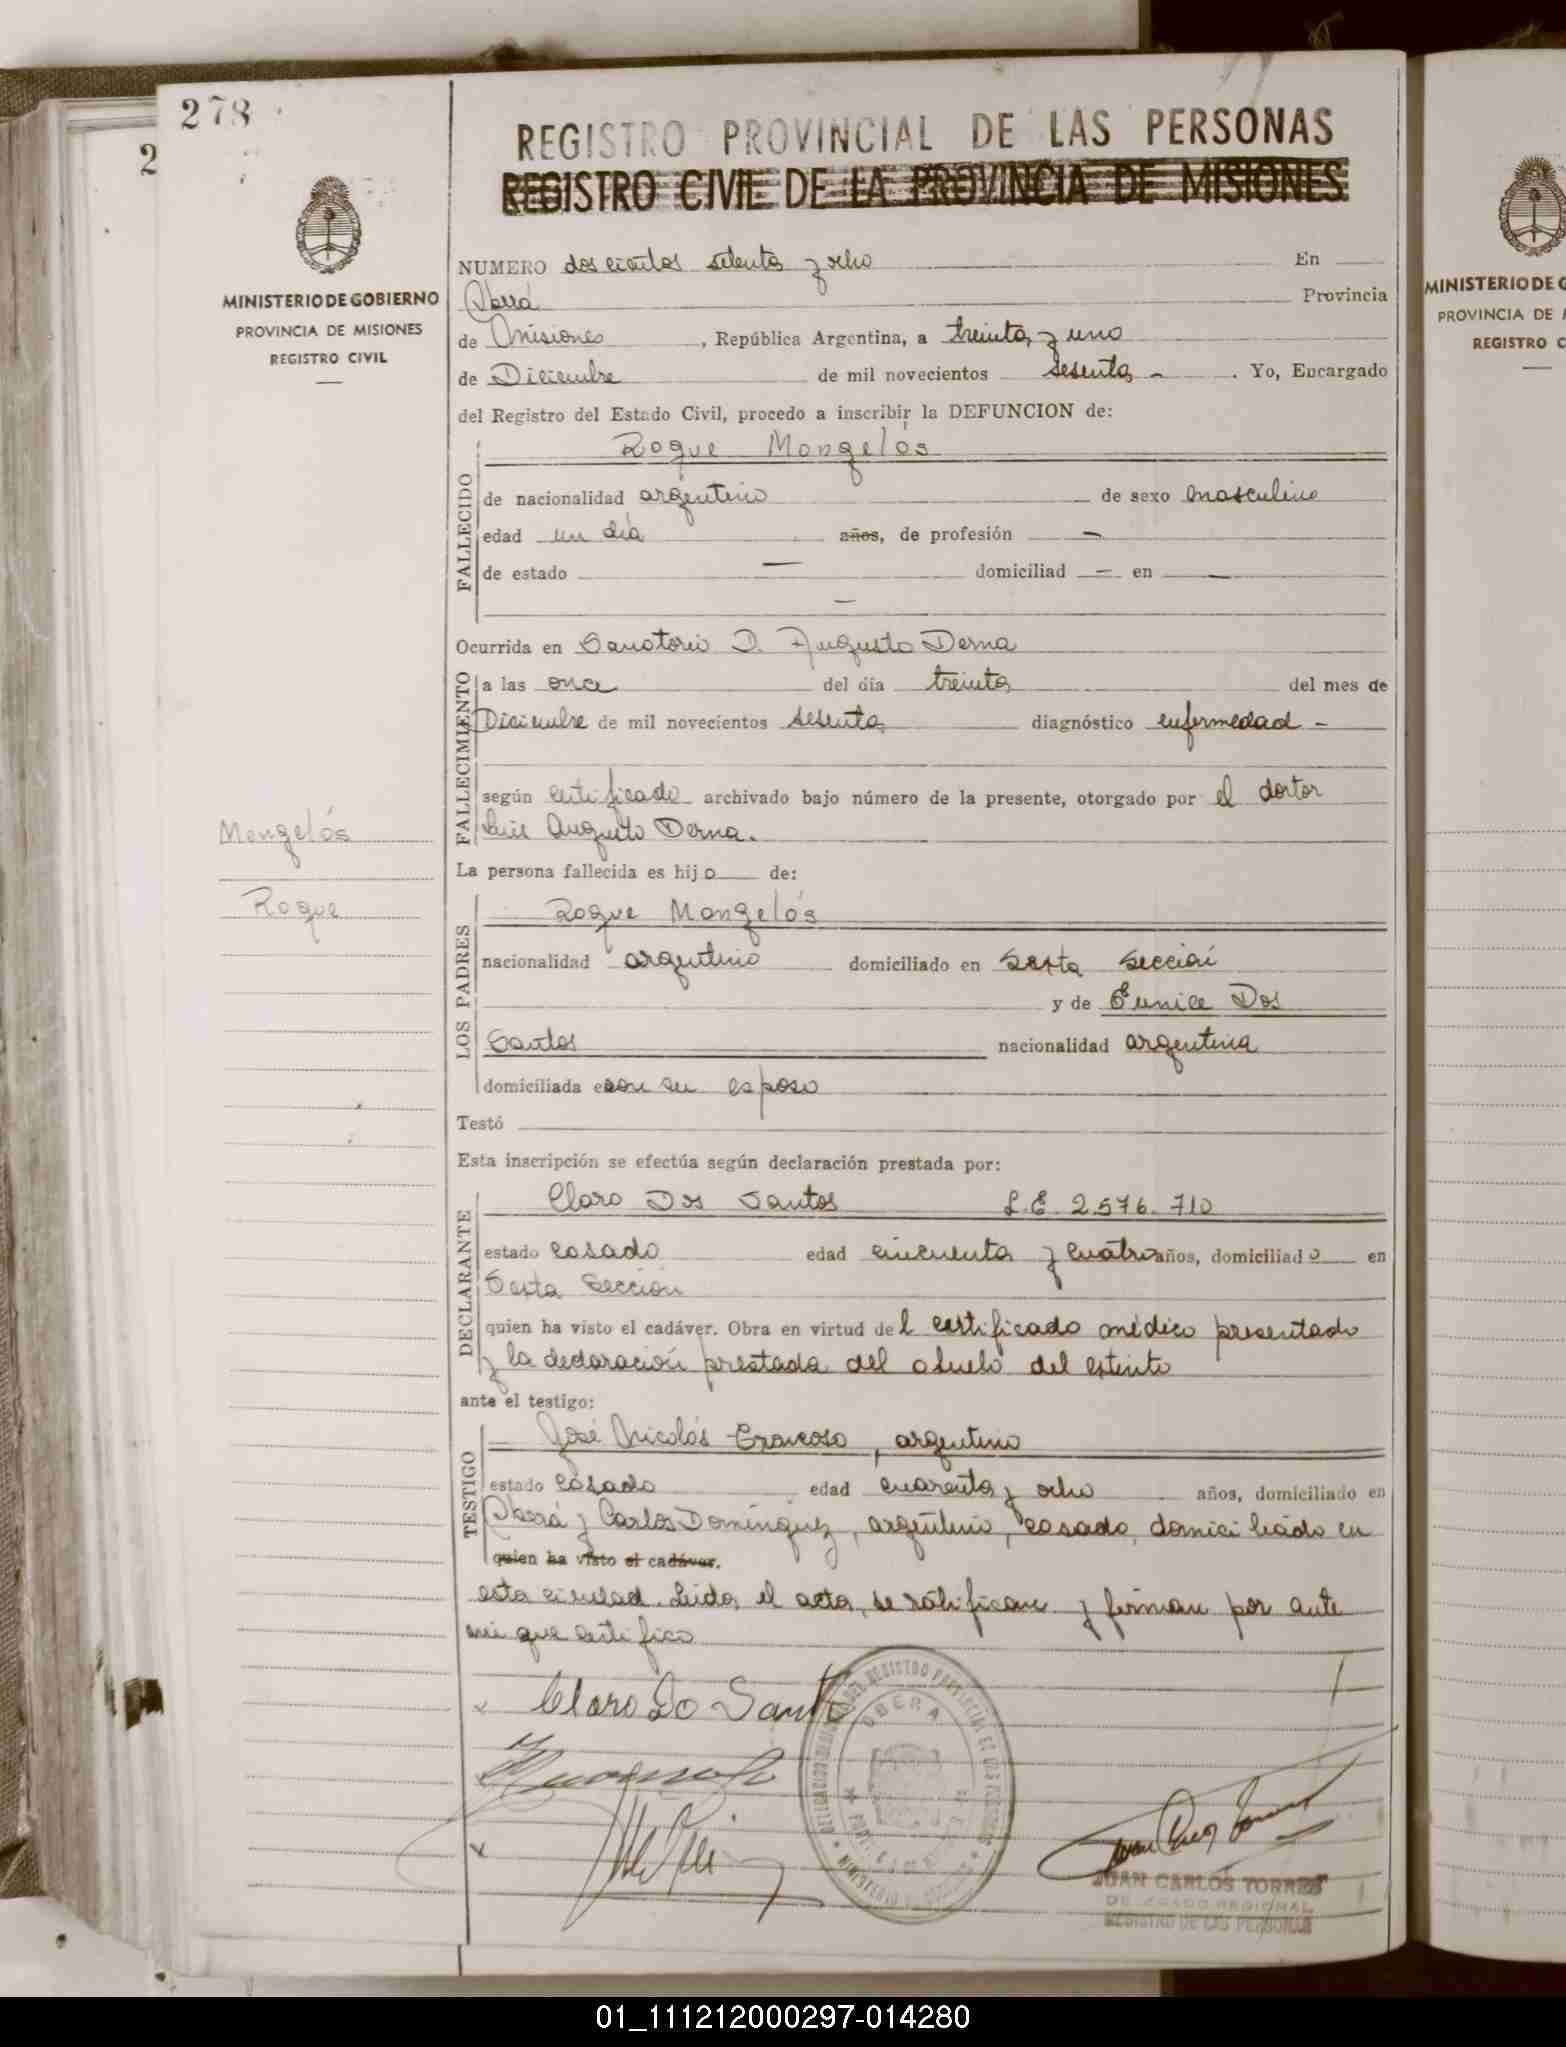 278
2
REGISTRO PROVINCIAL DE LAS PERSONAS
REGISTRO CIVIL DE LA PROVINCIA DE MISIONES
MINISTERIO DE GOBIERNO
PROVINCIA DE MISIONES
REGISTRO CIVIL
NUMERO doscientos setenta y ocho En
Oberá Provincia
de Misiones, República Argentina, a treinta y uno
de Diciembre de mil novecientos sesenta - . Yo, Encargado
del Registro del Estado Civil, procedo a inscribir la DEFUNCION de:
FALLECIDO
Roque Mongelos
de nacionalidad argentino de sexo masculino
edad un día años, de profesión —
de estado — domiciliad — en —
—
Ocurrida en Sanatorio D. Augusto Derna
FALLECIMIENTO
a las once del día treinta del mes de
Diciembre de mil novecientos sesenta diagnóstico enfermedad -
según certificado archivado bajo número de la presente, otorgado por el doctor
Luis Augusto Derna.
Mongelós
Roque
La persona fallecida es hijo de:
LOS PADRES
Roque Mongelós
nacionalidad argentino domiciliado en Sexta Sección
y de Eunice Dos
Santos nacionalidad argentina
domiciliada con su esposo
Testó
Esta inscripción se efectúa según declaración prestada por:
DECLARANTE
Claro Dos Santos L.E. 2.576.710
estado casado edad cincuenta y cuatro años, domiciliado en
Sexta Sección
quien ha visto el cadáver. Obra en virtud del certificado médico presentado
y la declaración prestada del abuelo del extinto
ante el testigo:
TESTIGO
José Nicolás , argentino
estado casado edad cuarenta y ocho años, domiciliado en
Oberá y Carlos Domínguez, argentino, casado, domiciliado en
quien ha visto el cadáver.
esta ciudad. Leída el acta, se ratifican y firman por ante
mi que certifico
Claro Do Santo
OBERA
JUAN CARLOS TORRES
DELEGADO REGIONAL
REGISTRO DE LAS PERSONAS
MINISTERIO DE G
PROVINCIA DE
REGISTRO C
01_111212000297-014280